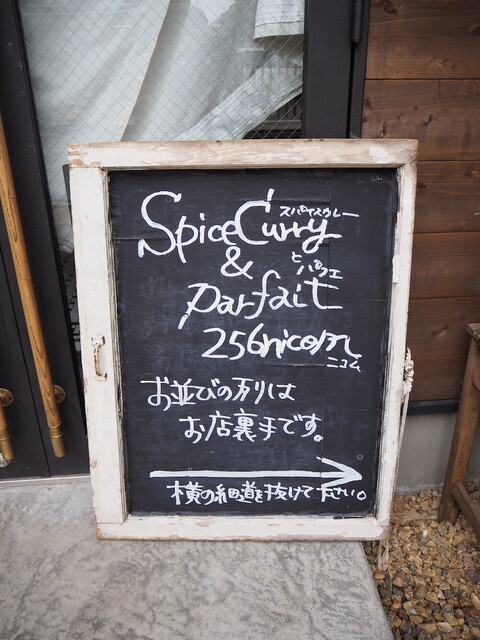 Spice Curry
スパイスカレー
&
と パフェ
parfait
256nicom
ニコム
お並びの方りは
お店裏手です。
横の細道を抜けて下さい。